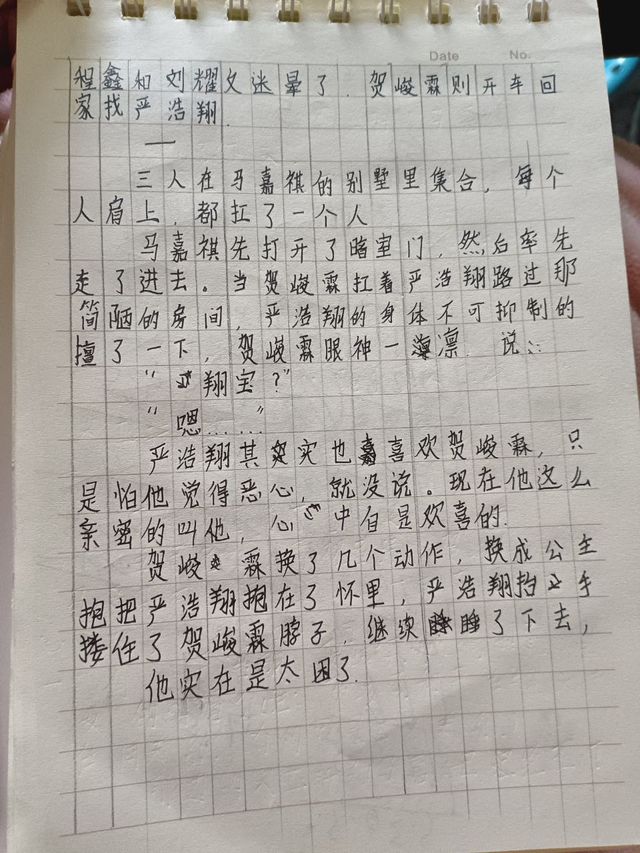 Date No.
程鑫和刘耀文迷晕了.贺峻霖则开车回
家找严浩翔.
——
三人在马嘉祺的别墅里集合,每个
人肩上,都扛了一个人
马嘉祺先打开了暗室门,然后率先
走了进去。当贺峻霖扛着严浩翔路过那
简陋的房间,严浩翔的身体不可抑制的
了一下,贺峻霖眼神一凛.说:
“翔宝?”
“嗯……”
严浩翔其实也喜欢贺峻霖,只
是怕他觉得恶心,就没说。现在他这么
亲密的叫他,心中自是欢喜的.
贺峻霖换了几个动作,换成公主
抱把严浩翔抱在了怀里,严浩翔抬手
搂住了贺峻霖脖子.继续睡了下去,
他实在是太困了.